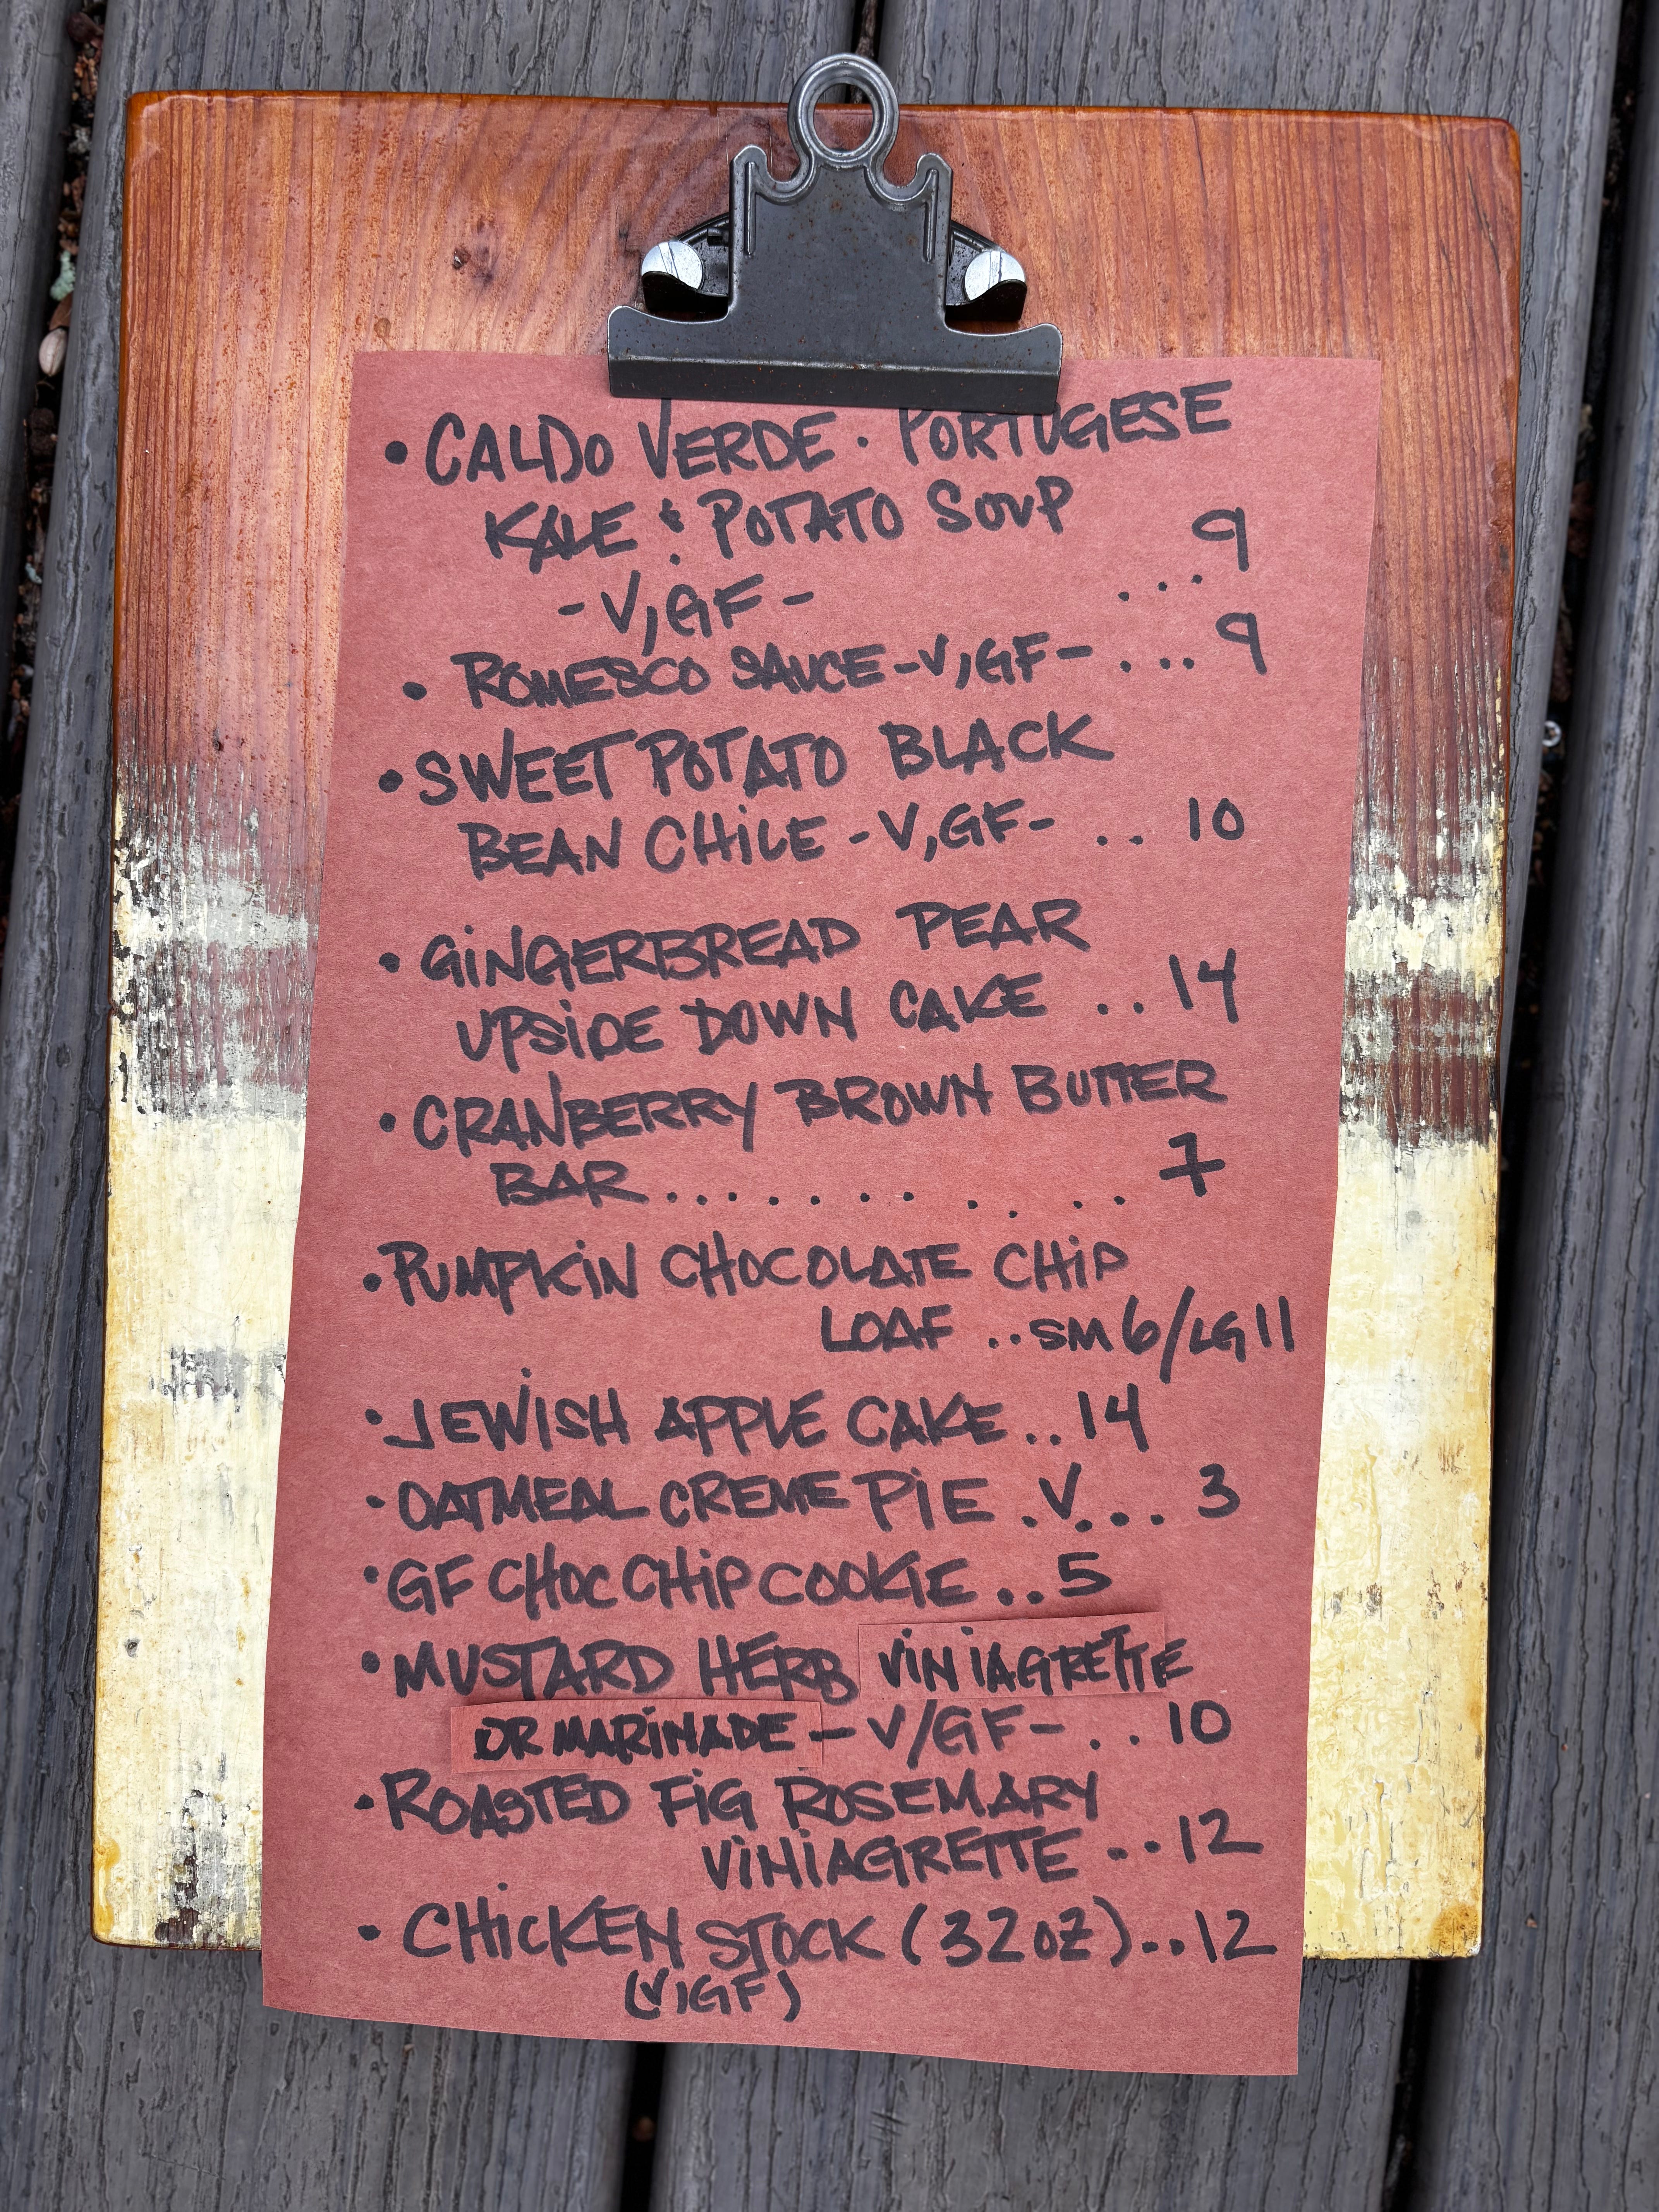 • CALDO VERDE · PORTUGESE
KALE & POTATO SOUP
-V,GF- ... 9
• ROMESCO SAUCE -V,GF- .... 9
• SWEET POTATO BLACK
BEAN CHILE -V,GF- .. 10
• GINGERBREAD PEAR
UPSIDE DOWN CAKE .. 14
• CRANBERRY BROWN BUTTER
BAR ............ 7
• PUMPKIN CHOCOLATE CHIP
LOAF .. SM 6/LG 11
• JEWISH APPLE CAKE .. 14
• OATMEAL CREME PIE .V... 3
• GF CHOC CHIP COOKIE .. 5
• MUSTARD HERB VINIAGRETTE
OR MARINADE - V/GF- .. 10
• ROASTED FIG ROSEMARY
VINIAGRETTE .. 12
• CHICKEN STOCK (32 OZ) .. 12
(V/GF)